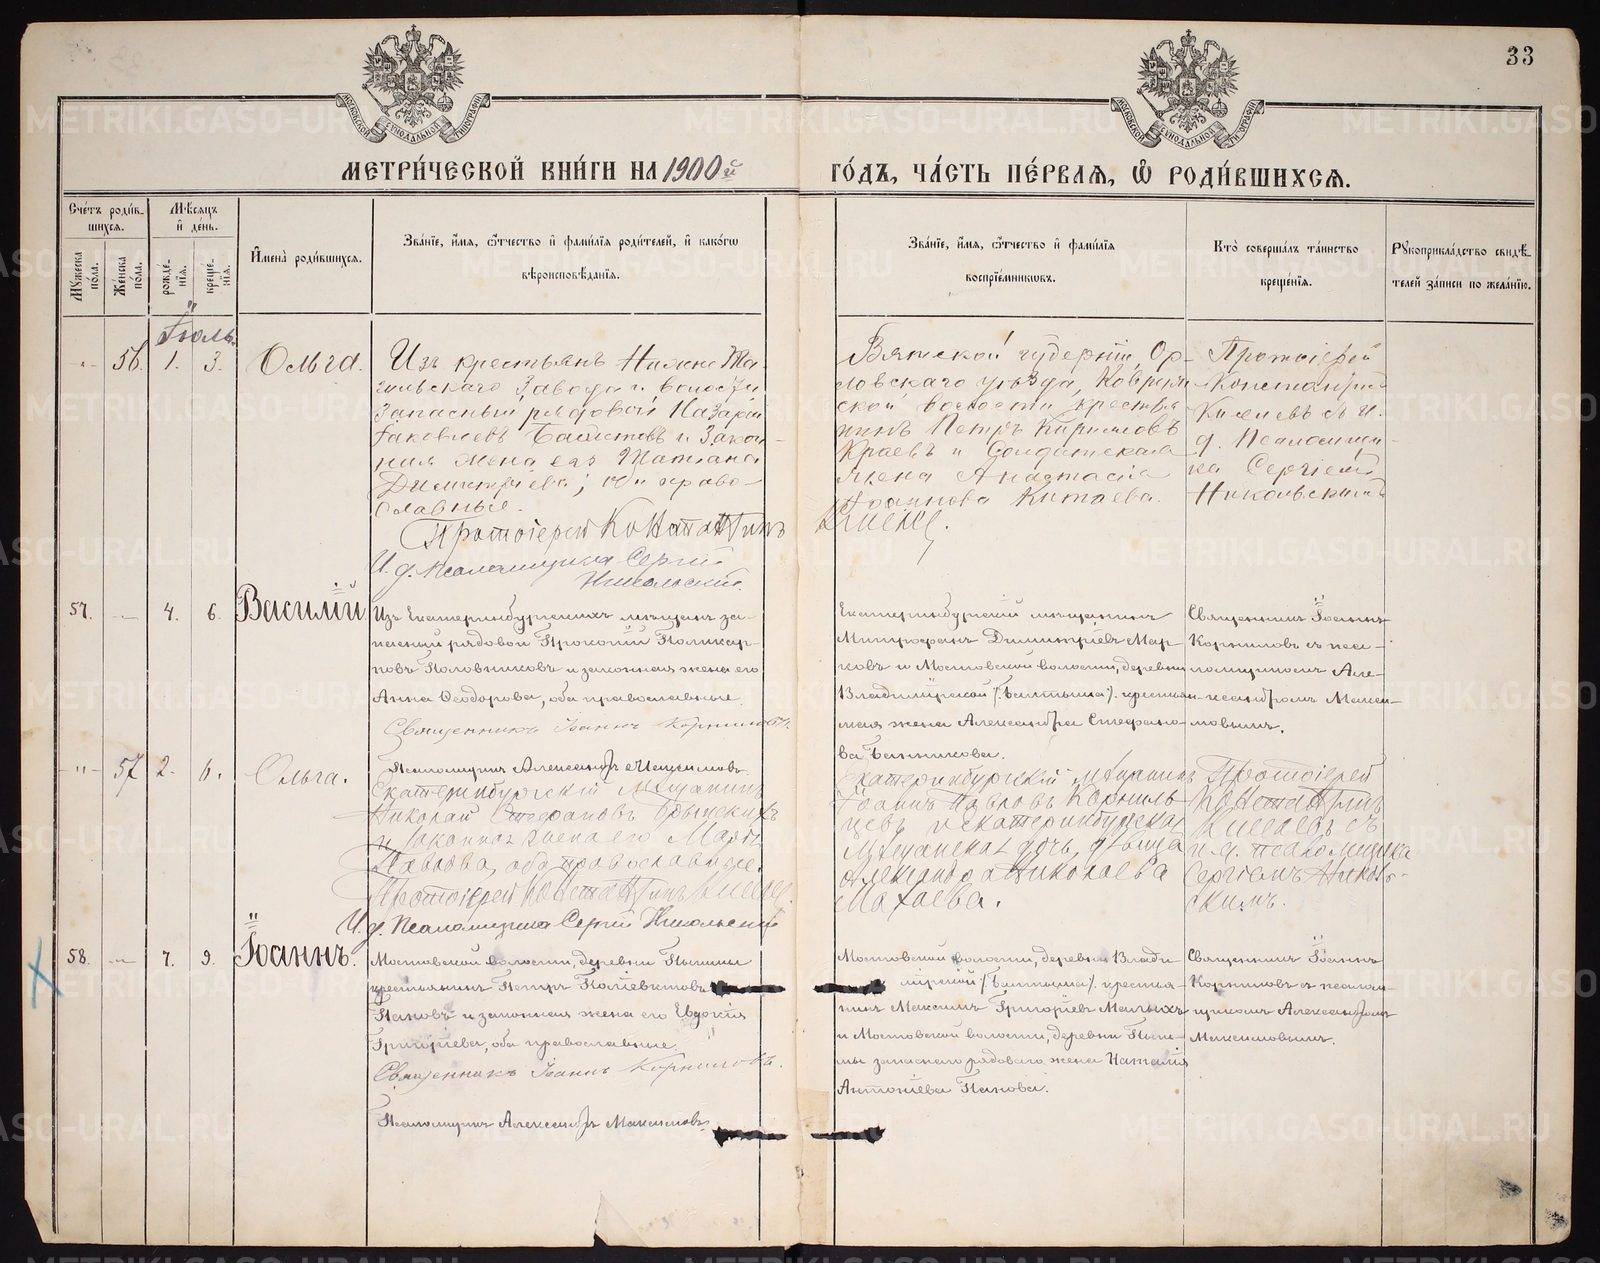 33
МЕТРИ́ЧЕСКОЙ КНИ́ГИ НА 1900й ГО́ДЪ, ЧА́СТЬ ПЕ́РВАЯ, Ѿ РОДИ́ВШИХСЯ.
Сче́тъ роди́вшихся.
Мѣ́сяцъ и де́нь.
Му́жеска по́ла.
Же́нска по́ла.
рожде́нія.
креще́нія.
Имена̀ роди́вшихся.
Зва́ніе, и́мя, о́тчество и фами́лія роди́телей, и како́гѡ
вѣроисповѣ́данія.
Зва́ніе, и́мя, о́тчество и фами́лія
воспріе́мниковъ.
Кто̀ соверша́лъ та́инство
креще́нія.
Рукоприкла́дство свидѣ́-
телей за́писи по жела́нію.
Іюль
56. 1. 3. Ольга.
Изъ крестьянъ Нижне Та-
гильскаго завода и волости
Запасный рядовой Назарій
Іаковлевъ и Закон-
ная жена его Татіана
Димитріева; оба право-
славные.
Протоіерей Константинъ
И. д. Псаломщика Сергій
Никольскій.
Вятской губерніи, Ор-
ловскаго уѣзда,
ской волости крестья-
нинъ Петръ Кирилловъ
Краевъ и Солдатская
жена Анастасія
Іоаннова Китаева.
Протоіерей
Константинъ
съ и.
д. Псаломщи-
ка Сергіемъ
Никольскимъ
57. — 4. 6. Василій
Изъ Екатеринбургскихъ мѣщанъ за-
пасный рядовой Прокопій Поликар-
повъ Половниковъ и законная жена его
Анна Ѳеодорова, оба православные.
Священникъ Іоаннъ Корниловъ.
Псаломщикъ Александръ Максимовъ.
Екатеринбургскій мѣщанинъ
Митрофанъ Димитріевъ Мар-
ковъ и Мостовской волости, деревни
Владимірской (Балтыма) крестьян-
ская жена Александра Стефано-
ва Банникова.
Священникъ Іоаннъ
Корниловъ съ пса-
ломщикомъ Але-
ксандромъ Макси-
мовымъ.
57 2. 6. Ольга.
Екатеринбургскій мѣщанинъ
Николай Стефановъ
и законная жена его Марѳа
Павлова, оба православные.
Протоіерей Константинъ
И. д. Псаломщика Сергій Никольскій
Екатеринбургскій мѣщанинъ
Іоаннъ Павловъ Корниль-
цевъ и Екатеринбургская
мѣщанская дочь, дѣвица
Александра Николаева
Махаева.
Протоіерей
Константинъ
съ
и. д. псаломщика
Сергіемъ Николь-
скимъ.
58. — 7. 9. Іоаннъ.
Мостовской волости, деревни Пышмы
крестьянинъ Петръ Поліевктовъ
Пановъ и законная жена его Евдокія
Григоріева, оба православные.
Священникъ Іоаннъ Корниловъ.
Псаломщикъ Александръ Максимовъ.
Мостовской волости, деревни Влади-
мірской (Балтыма) крестья-
нинъ Максимъ Григоріевъ Малыхъ
и Мостовской волости, деревни Пыш-
мы запаснаго рядоваго жена Наталія
Антоніева Панова.
Священникъ Іоаннъ
Корниловъ съ псалом-
щикомъ Александромъ
Максимовымъ.
METRIKI.GASO-URAL.RU